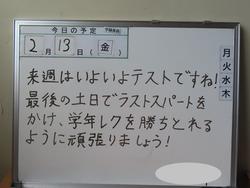 今日の予定
2月13日(金)
月火水木
来週はいよいよテストですね!
最後の土日でラストスパートを
かけ、学年レクを勝ちとれる
ように頑張りましょう!